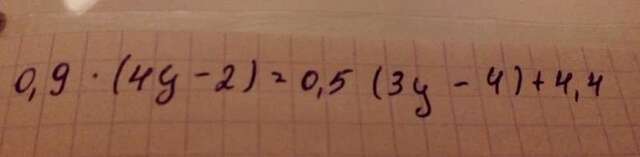 0,9 · (4y - 2) = 0,5 (3y - 4) + 4,4